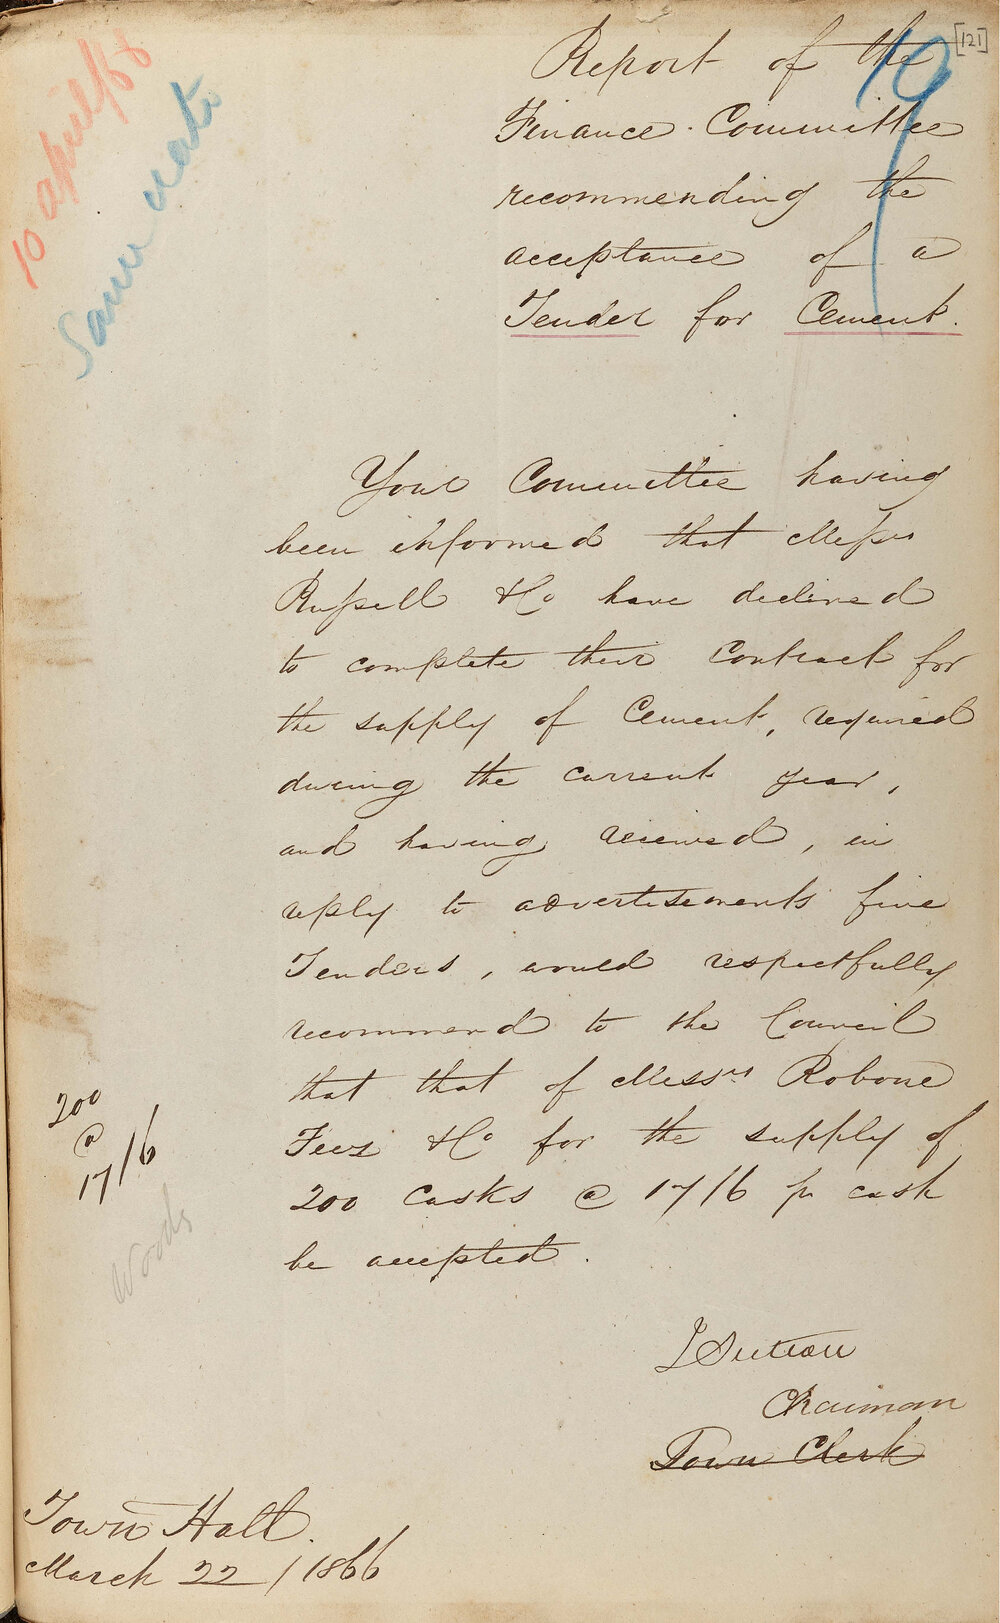 [121]
19
10 april/66
Report of the
Finance Committee
recommending the
acceptance of a
Tender for Cement.
Your Committee having
been informed that Messrs
Russell & Co have declined
to complete their Contract for
the supply of Cement, required
during the current year,
and having received, in
reply to advertisements five
Tenders, would respectfully
recommend to the Council
that that of Messrs Robone
Fees & Co for the supply of
200 Casks @ 17/6 pr cask
be accepted.
200
@
17/6
Woods
J Sutton
Chairman
Town Clerk
Town Hall.
March 22/1866